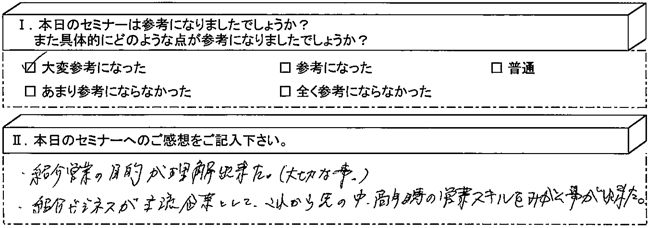 Ⅰ．本日のセミナーは参考になりましたでしょうか？
また具体的にどのような点が参考になりましたでしょうか？
☑ 大変参考になった □ 参考になった □ 普通
□ あまり参考にならなかった □ 全く参考にならなかった
Ⅱ．本日のセミナーへのご感想をご記入下さい。
・紹介営業の目的が理解出来た。（大切な事。）
・紹介ビジネスが主流企業として、これから先の中、の営業スキルをみがく事が出来た。